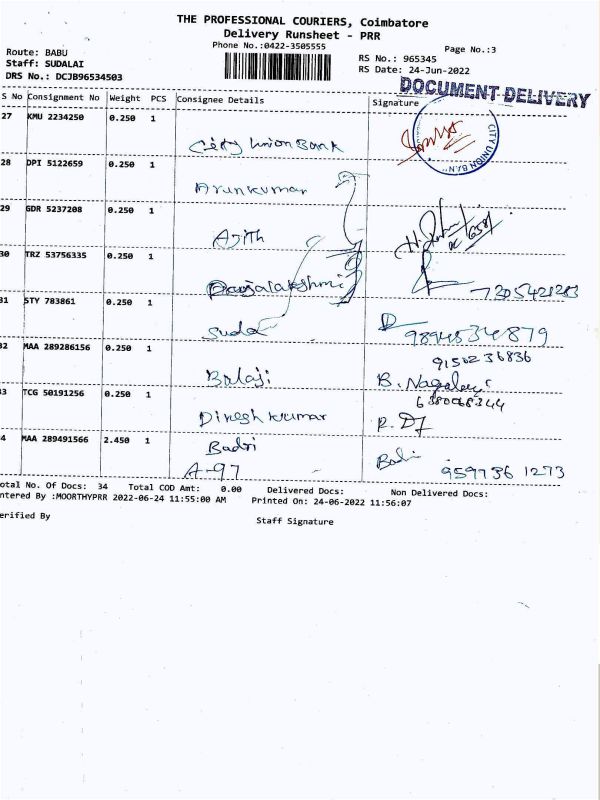 THE PROFESSIONAL COURIERS, Coimbatore
Delivery Runsheet - PRR
Phone No.:0422-3505555
Page No.:3
Route: BABU
Staff: SUDALAI
DRS No.: DCJB96534503
RS No.: 965345
RS Date: 24-Jun-2022
DOCUMENT DELIVERY
S No Consignment No Weight PCS Consignee Details Signature
27 KMU 2234250 0.250 1
City Union Bank
CITY UNION BAN
28 DPI 5122659 0.250 1
Arunkumar
29 GDR 5237208 0.250 1
Ajith
30 TRZ 53756335 0.250 1
7205421283
31 STY 783861 0.250 1
9894534879
32 MAA 289286156 0.250 1
9150236836
Balaji B.
33 TCG 50191256 0.250 1
Dinesh kumar
34 MAA 289491566 2.450 1
Badri
A-97 9597361273
otal No. Of Docs: 34 Total COD Amt: 0.00 Delivered Docs: Non Delivered Docs:
ntered By :MOORTHYPRR 2022-06-24 11:55:00 AM Printed On: 24-06-2022 11:56:07
erified By
Staff Signature